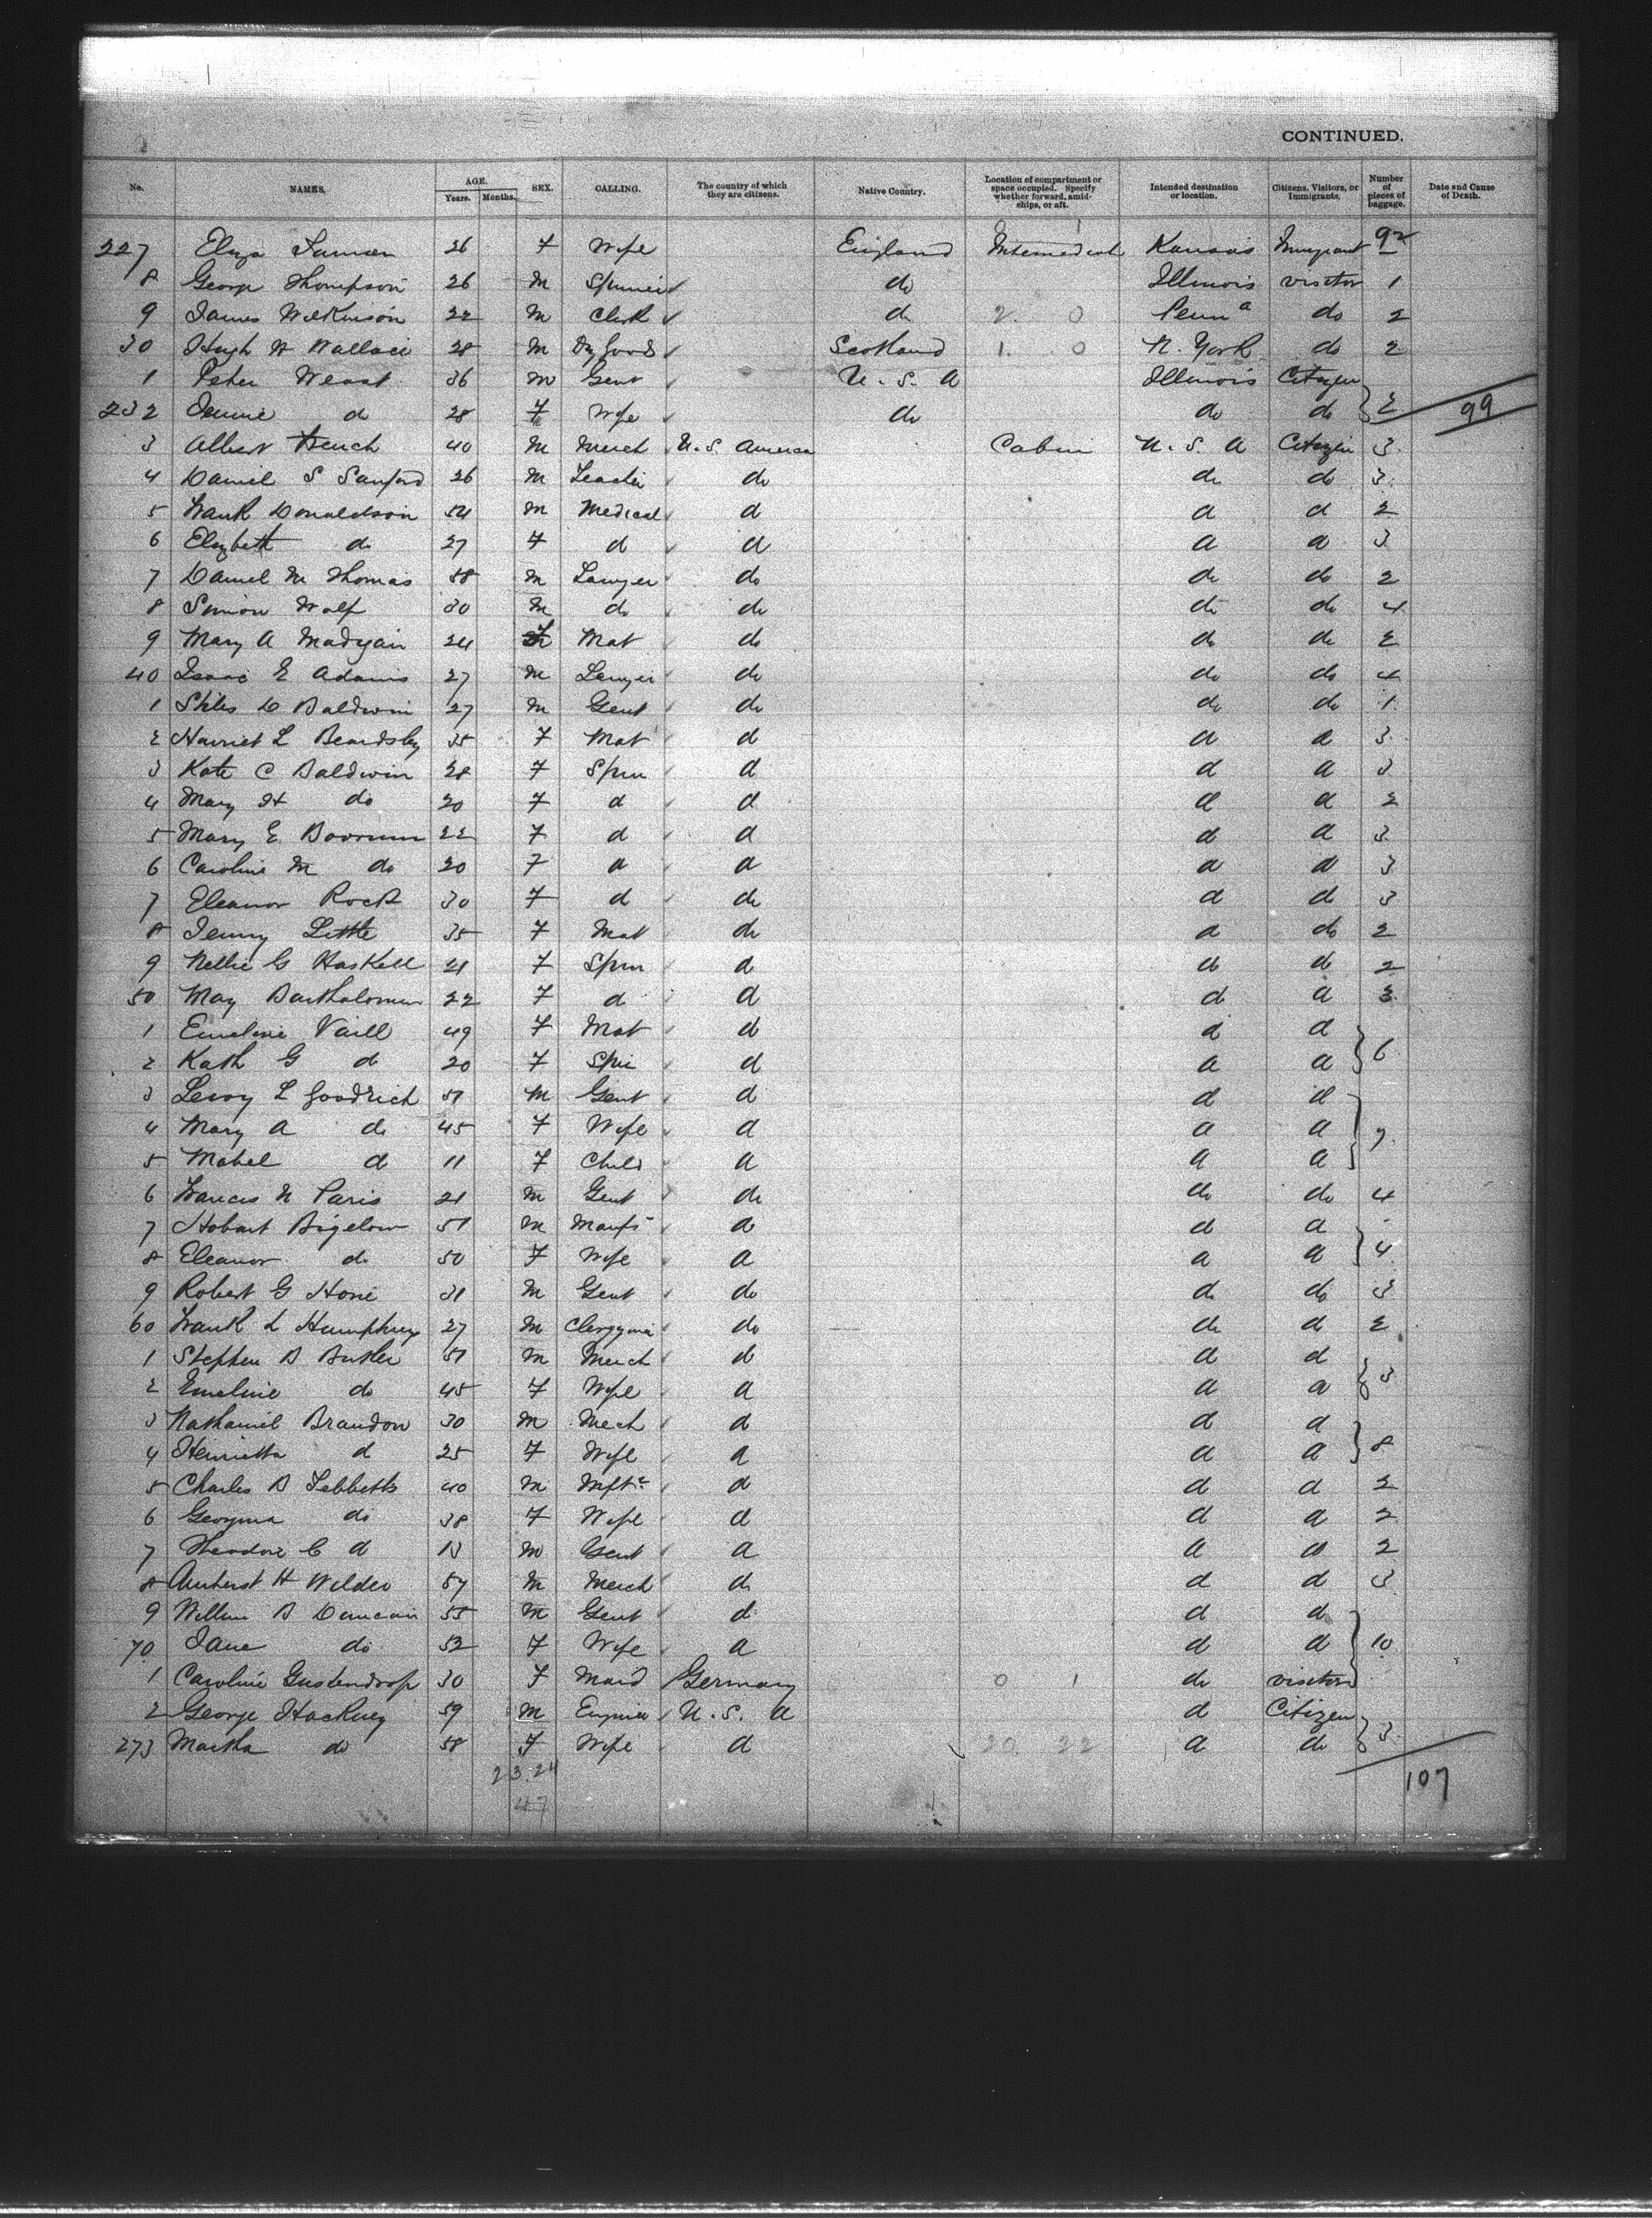 CONTINUED.
No. NAMES. AGE. Years. Months. SEX. CALLING. The country of which they are citizens. Native Country. Location of compartment or space occupied. Specify whether forward, amidships, or aft. Intended destination or location. Citizens, Visitors, or Immigrants. Number of pieces of baggage. Date and Cause of Death.
227 Eliza 26 F Wife England Intermediate Kansas Immigrant 92
8 George Thompson 26 M Spinner do Illinois visitor 1
9 James Wilkinson 22 M Clerk do 2 0 Penna do 2
30 Hugh W Wallace 28 M Dry Goods Scotland 1 0 N. York do 2
1 Peter Weast 36 M Gent U. S. A Illinois Citizen
232 Jennie do 28 F Wife do do do 2 99
3 Albert French 40 M Merch U. S. America Cabin U. S. A Citizen 3
4 Daniel S Sanford 26 M Teacher do do do 3
5 Frank Donaldson 54 M Medical d d d 2
6 Elizbeth do 27 F d d d d 3
7 Daniel M Thomas 58 M Lawyer do do do 2
8 Simon Wolf 30 M do do do do 4
9 Mary A Madigan 24 F Mat do do do 2
40 Isaac E Adams 27 M Lawyer do do do 4
1 Stiles D Baldwin 27 M Gent do do do 1
2 Harriet L Beardsley 35 F Mat d d d 3
3 Kate C Baldwin 28 F Spin d d d 3
4 Mary H do 20 F d d d d 2
5 Mary E Boorum 22 F d d d d 3
6 Caroline M do 20 F d d d d 3
7 Eleanor Rock 30 F d do d d 3
8 Jenny Little 35 F Mat do d do 2
9 Nellie G Haskell 21 F Spin d d d 2
50 May Bartholomew 22 F d d d d 3
1 Emeline Vaill 49 F Mat d d d
2 Kath G d 20 F Spin d d d 6
3 Leroy L Goodrich 51 M Gent d d d
4 Mary A do 45 F Wife d d d 7
5 Mabel d 11 F Child d d d
6 Francis N Paris 21 M Gent do do do 4
7 Hobart Bigelow 51 M Manfr d d d
8 Eleanor do 50 F Wife d d d 4
9 Robert G Hone 31 M Gent do d do 3
60 Frank L Humphrey 27 M Clergyman do do d 2
1 Stephen B Butler 51 M Merch d d d
2 Emeline do 45 F Wife d d d 3
3 Nathaniel Brandon 30 M Mech d d d
4 Henrietta d 25 F Wife d d d 8
5 Charles B Tebbetts 40 M Mftr d d d 2
6 Georgina do 38 F Wife d d d 2
7 Theodore C d 13 M Gent d d d 2
8 Amherst H Wilder 57 M Merch d d d 3
9 William B Duncan 55 M Gent d d d
70 Jane do 52 F Wife d d d 10
1 Caroline 30 F Maid Germany 0 1 do visitor
2 George Hackney 59 M Engineer U. S. A d Citizen
273 Martha do 58 F Wife d 20 22 d do 3
23.24
47
107